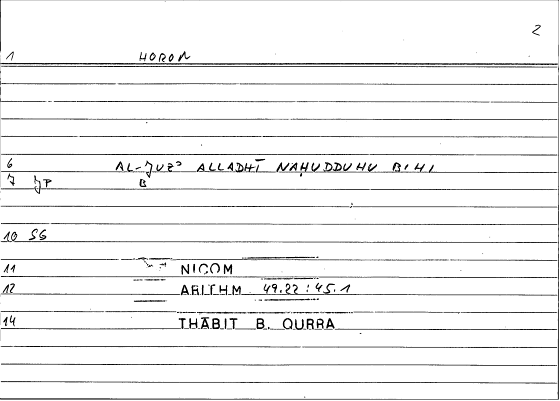 2
1 HORON
6 AL-JUZʾ ALLADHĪ NAḤUDDUHU BIHI
7 JP B
10 SG
11 NICOM
12 ARITHM 49.22 : 45.1
14 THĀBIT B. QURRA